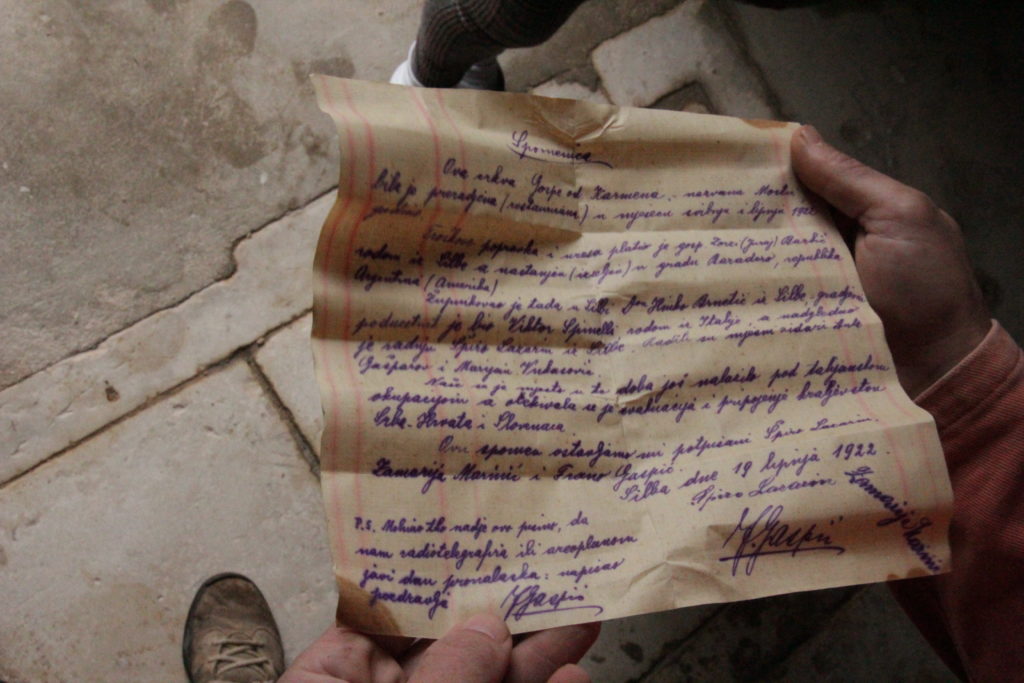 Spomenica
Ova crkva Gospe od Karmena, nazvana
bila je preradjena (restaurirana) u mjesecu svibnju i lipnju 1922
godine.
Troškove popravka i uresa platio je gosp. Zorzi (Juraj)
rodom iz Silbe a nastanjen u gradu Baradero, republika
Argentina (Amerika)
Župnikovao je tada u Silbi don iz Silbe, gradjevni
poduzetnik je bio Viktor Spinelli rodom iz Italije a nadgledao
je radnju Špiro Lazarin iz Silbe. Radili su mjesni zidari Ante
Gašparov i Marijan
Naše se je mjesto u to doba još nalazilo pod talijanskom
okupacijom a očekivala se je evakuacija i pripojenje kraljevstvu
Srba-Hrvata i Slovenaca
Ovu spomen ostavljamo mi potpisani Špiro Lazarin,
Zamarija i Frano Gaspić.
Silba dne 19 lipnja 1922.
Spiro Lazarin
Zamarija
F. Gaspić
P.S. Molimo tko nadje ovo pismo, da
nam radiotelegrafira ili areoplanom
javi dan pronalaska: napisao
pozdravlja
F Gaspić